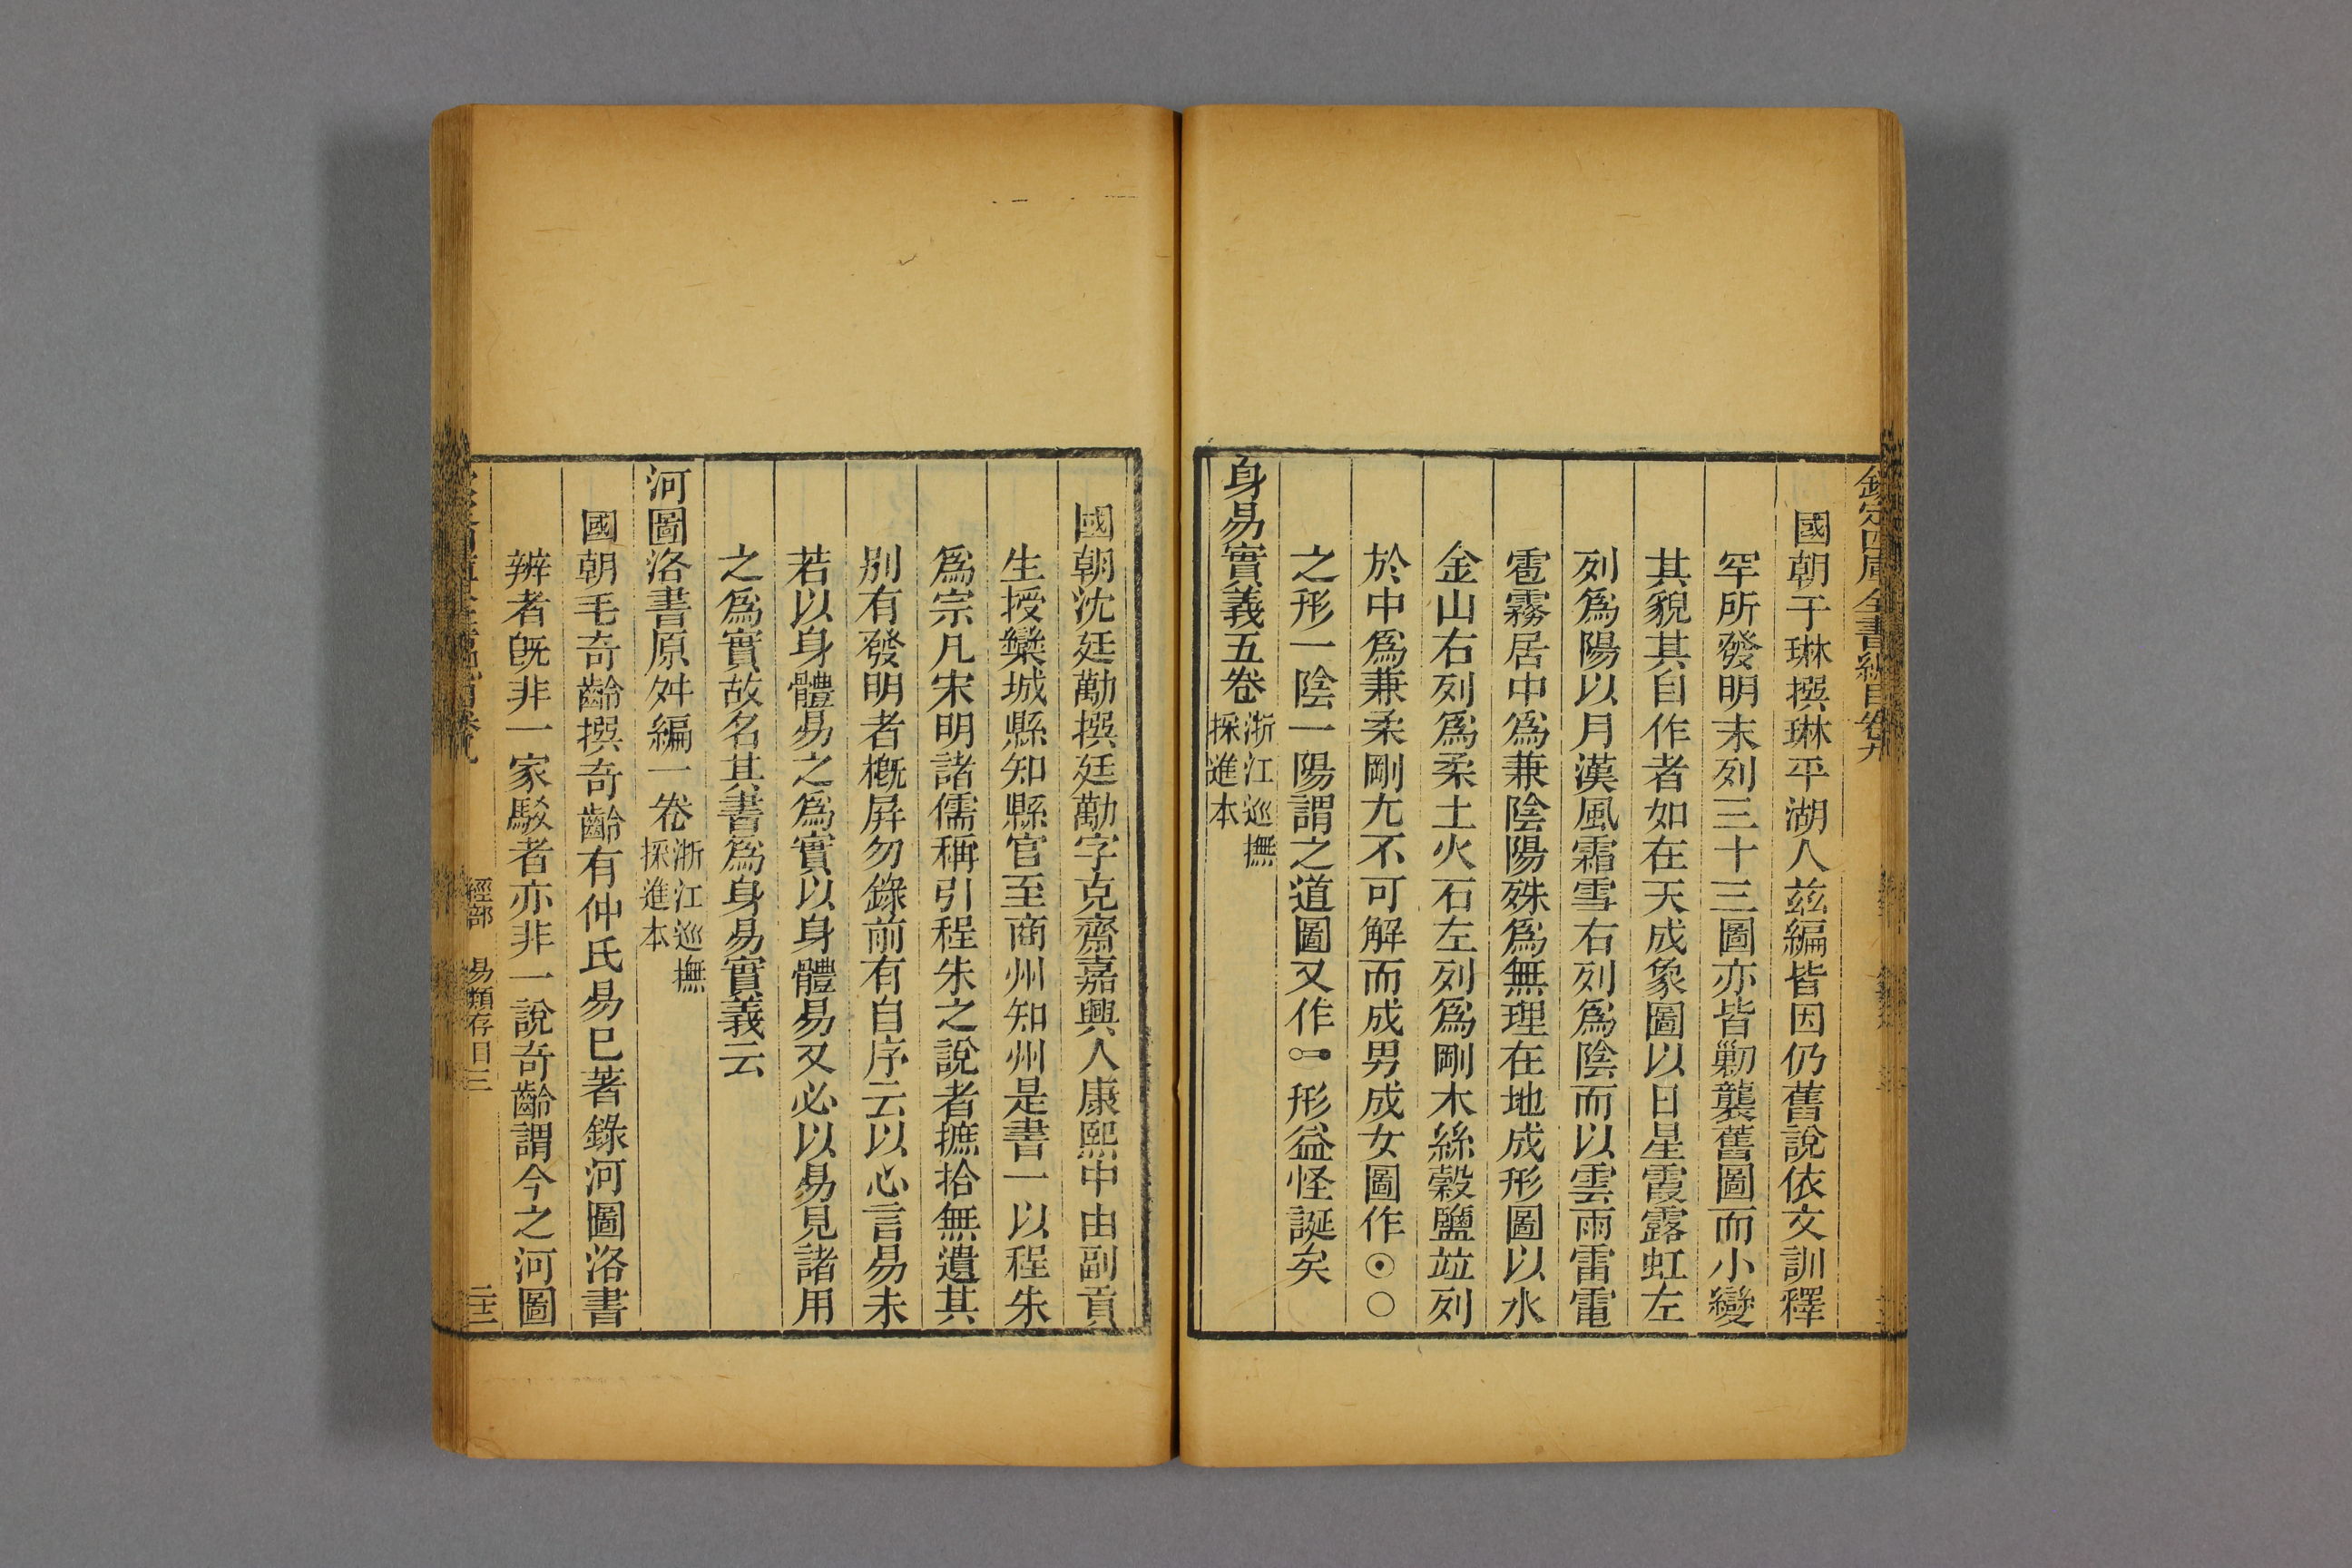 欽定四庫全書總目卷九
國朝于琳撰琳平湖人茲編皆因仍舊說依文訓釋
罕所發明末列三十三圖亦皆勦襲舊圖而小變
其貌其自作者如在天成象圖以日星霞露虹左
列爲陽以月漢風霜雪右列爲陰而以雲雨雷電
雹霧居中爲兼陰陽殊爲無理在地成形圖以水
金山右列爲柔土火石左列爲剛木絲穀鹽竝列
於中爲兼柔剛尤不可解而成男成女圖作☉○
之形一陰一陽謂之道圖又作形益怪誕矣
身易實義五卷浙江巡撫採進本
國朝沈廷勱撰廷勱字克齋嘉興人康熙中由副貢
生授欒城縣知縣官至商州知州是書一以程朱
爲宗凡宋明諸儒稱引程朱之說者摭拾無遺其
別有發明者槪屏勿錄前有自序云以心言易未
若以身體易之爲實以身體易又必以易見諸用
之爲實故名其書爲身易實義云
河圖洛書原舛編一卷浙江巡撫採進本
國朝毛奇齡撰奇齡有仲氏易已著錄河圖洛書
辨者旣非一家駁者亦非一說奇齡謂今之河圖
經部 易類存目三 二十三